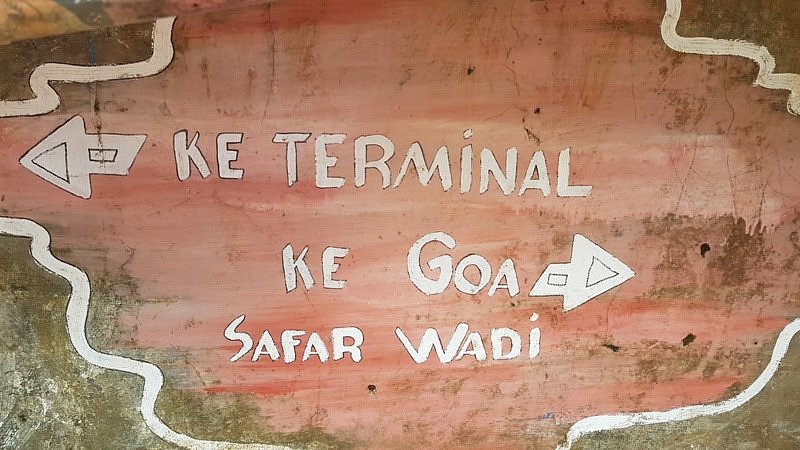 KE TERMiNAL
KE GOA
SAFAR WADi